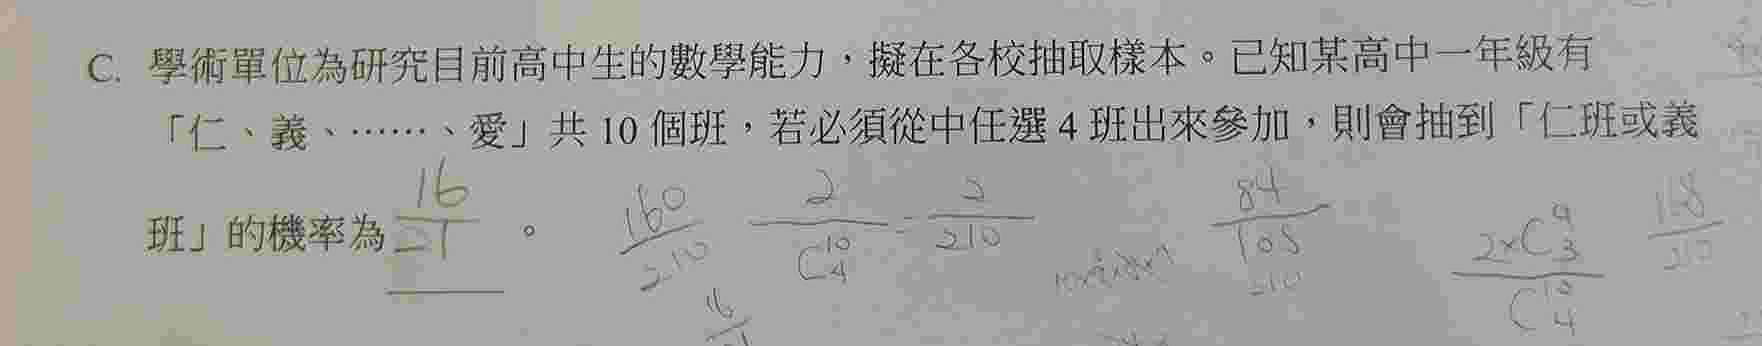 C. 學術單位為研究目前高中生的數學能力，擬在各校抽取樣本。已知某高中一年級有
「仁、義、……、愛」共 10 個班，若必須從中任選 4 班出來參加，則會抽到「仁班或義
班」的機率為 16/21 。
160/210
2/C^10_4 = 2/210
84/105
210
2×C^9_3/C^10_4
168/210
16